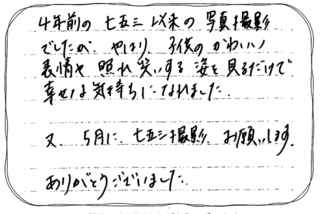 4年前の七五三以来の写真撮影
でしたが、やはり 子供のかわいい
表情や照れ笑いする姿を見るだけで
幸せな気持ちになれました。
又、5月に七五三撮影、お願いします。
ありがとうございました。